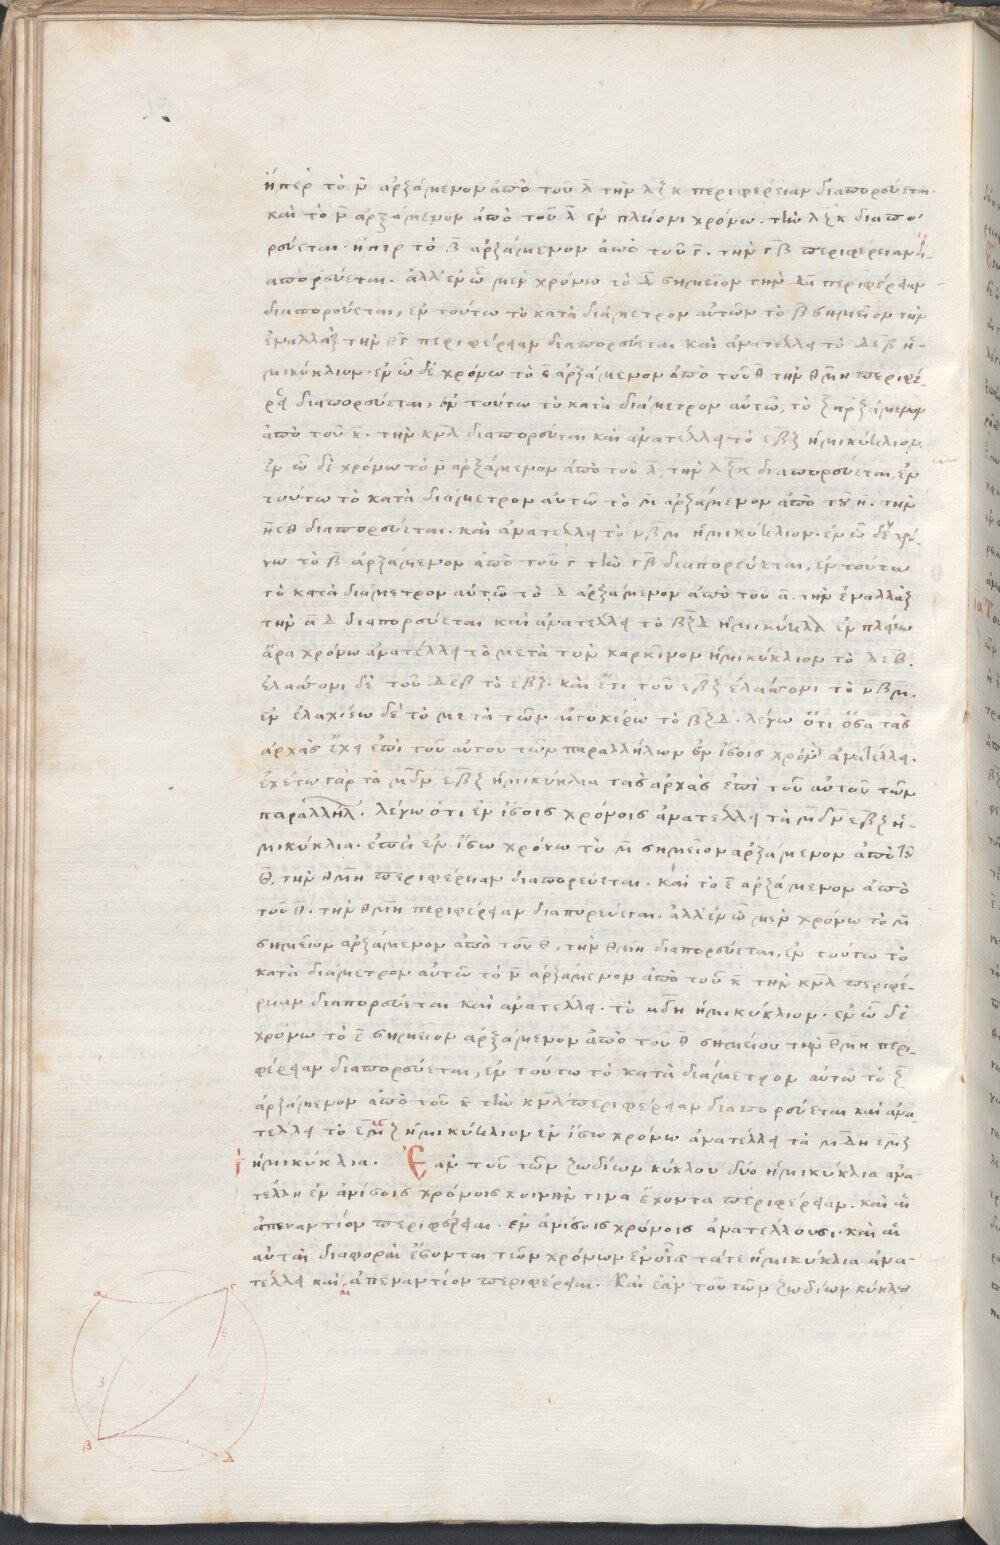 ἤπερ τὸ ν̄ ἀρξάμενον ἀπὸ τοῦ λ̄ τὴν λξκ περιφέρειαν διαπορεύεται.
καὶ τὸ ν̄ ἀρξάμενον ἀπὸ τοῦ λ̄ ἐν πλείονι χρόνω. τὴν λξκ διαπο-
ρεύεται. ἤπερ τὸ β̄ ἀρξάμενον ἀπὸ τοῦ γ̄. τὴν γβ περιφέρειαν δι-
απορεύεται. ἀλλ' ἐν ὧ μὲν χρόνω τὸ δ̄ σημεῖον τὴν δα περιφέρειαν
διαπορεύεται, ἐν τούτω τὸ κατὰ διάμετρον αὐτῶν τὸ β̄ σημεῖον τὴν
ἐναλλὰξ τὴν βγ περιφέρειαν διαπορεύεται καὶ ἀνατέλλει τὸ δεβ ἡ-
μικύκλιον. ἐν ὧ δὲ χρόνω τὸ ε̄ ἀρξάμενον ἀπὸ τοῦ θ̄ τὴν θμη περιφέ-
ρει διαπορεύεται, ἐν τούτω τὸ κατὰ διάμετρον αὐτῶ, τὸ ξ̄ ἀρξάμενον
ἀπὸ τοῦ κ̄. τὴν κνλ διαπορεύεται καὶ ἀνατέλλει τὸ εβξ ἡμικύκλιον.
ἐν ὧ δὲ χρόνω τὸ ν̄ ἀρξάμενον ἀπὸ τοῦ λ̄, τὴν λξκ διαπορεύεται, ἐν
τούτω τὸ κατὰ διάμετρον αὐτῶ τὸ μ̄ ἀρξάμενον ἀπὸ τοῦ η̄. τὴν
ηεθ διαπορεύεται. καὶ ἀνατέλλει τὸ νβμ ἡμικύκλιον. ἐν ὧ δὲ χρό-
νω τὸ β̄ ἀρξάμενον ἀπὸ τοῦ γ τὴν γβ διαπορεύεται, ἐν τούτω
τὸ κατὰ διάμετρον αὐτῶ τὸ δ ἀρξάμενον ἀπὸ τοῦ ᾱ. τὴν ἐναλλὰξ
τὴν αδ διαπορεύεται καὶ ἀνατέλλει τὸ βξδ ἡμικύκλιον ἐν πλείω
ἄρα χρόνω ἀνατέλλει τὸ μετὰ τὸν καρκίνον ἡμικύκλιον τὸ δεβ.
ἐλάσσονι δὲ τοῦ δεβ τὸ εβξ. καὶ ἔτι τοῦ εβξ ἐλάσσονι τὸ νβμ.
ἐν ἐλαχίσω δὲ τὸ μετὰ τὸν αἰγοκέρω τὸ βξδ. λέγω ὅτι ὅσα τὰς
ἀρχὰς ἔχει ἐπὶ τοῦ αὐτοῦ τῶν παραλλήλων ἐν ἴσοις χρόνοις ἀνατέλλει.
ἐχέτω γὰρ τὰ μδν εβξ ἡμικύκλια τὰς ἀρχὰς ἐπὶ τοῦ αὐτοῦ τῶν
παραλλήλ. λέγω ὅτι ἐν ἴσοις χρόνοις ἀνατέλλει τὰ μδν εβξ ἡ-
μικύκλια. ἐπεὶ ἐν ἴσω χρόνω τὸ μ̄ σημεῖον ἀρξάμενον ἀπὸ τοῦ
θ̄, τὴν θμη περιφέρειαν διαπορεύεται. καὶ τὸ ε̄ ἀρξάμενον ἀπὸ
τοῦ θ̄. τὴν θμη περιφέρειαν διαπορεύεται. ἀλλ' ἐν ὧ μὲν χρόνω τὸ μ̄
σημεῖον ἀρξάμενον ἀπὸ τοῦ θ, τὴν θμη διαπορεύεται, ἐν τούτω τὸ
κατὰ διάμετρον αὐτῶ τὸ ν̄ ἀρξάμενον ἀπὸ τοῦ κ̄ τὴν κνλ περιφέ-
ρειαν διαπορεύεται καὶ ἀνατέλλει. τὸ μδν ἡμικύκλιον. ἐν ὧ δὲ
χρόνω τὸ ε̄ σημεῖον ἀρξάμενον ἀπὸ τοῦ θ̄ σημείου τὴν θμη περι-
φέρειαν διαπορεύεται, ἐν τούτω τὸ κατὰ διάμετρον αὐτῶ τὸ ξ̄
ἀρξάμενον ἀπὸ τοῦ κ̄ τὴν κνλ περιφέρειαν διαπορεύεται καὶ ἀνα-
τέλλει τὸ εβξ ἡμικύκλιον ἐν ἴσω χρόνω ἀνατέλλει τὰ μδν εβξ
ἡμικύκλια. Ἐὰν τοῦ τῶν ζωδίων κύκλου δύο ἡμικύκλια ἀνα-
τέλλη ἐν ἀνίσοις χρόνοις κοινήν τινα ἔχοντα περιφέρειαν. καὶ αἱ
ἀπεναντίον περιφέρειαι. ἐν ἀνίσοις χρόνοις ἀνατέλλουσι. καὶ αἱ
αὐταὶ διαφοραὶ ἔσονται τῶν χρόνων ἐν οἷς τά τε ἡμικύκλια ἀνα-
τέλλει καὶ αἱ ἀπεναντίον περιφέρειαι. Καὶ ἐὰν τοῦ τῶν ζωδίων κύκλου
α γ
ε
ζ
β δ